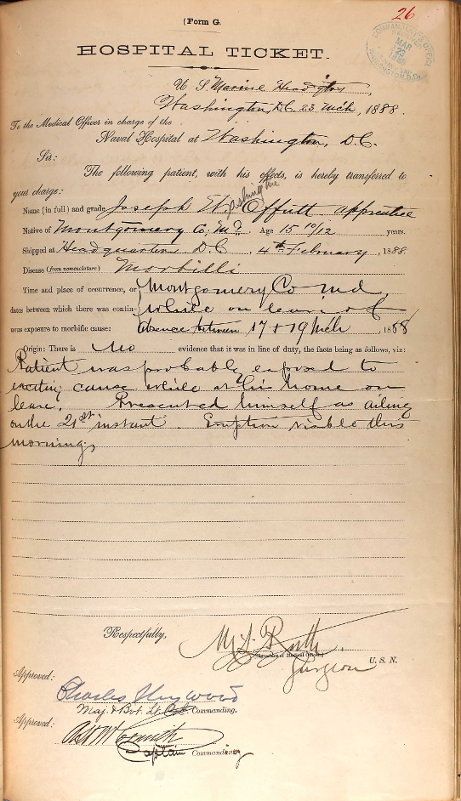 (Form G.
26
HOSPITAL TICKET.
U S Marine Headqtrs
Washington, D.C. 23 Mch, 1888.
To the Medical Officer in charge of the
Naval Hospital at Washington, D.C.
Sir:
The following patient, with his effects, is hereby transferred to
your charge:
Name (in full) and grade, Joseph W. Offutt apprentice
Native of Montgomery Co; Md. Age 15 10/12 years.
Shipped at Headquarters D C 4th February, 1888
Disease (from nomenclature) Morbilli
Time and place of occurrence, or Montgomery Co Md,
dates between which there was contin- while on leave of
uous exposure to morbific cause: absence between 17 & 19 Mch 1888
Origin: There is no evidence that it was in line of duty, the facts being as follows, viz:
Patient was probably exposed to
exciting cause while at his home on
leave. Presented himself as ailing
on the 21st instant. Eruption visible this
morning.
Respectfully,
Surgeon U. S. N.
Approved:
Charles Heywood
Maj & Bvt Lt Col Commanding.
Approved:
Captain Commanding